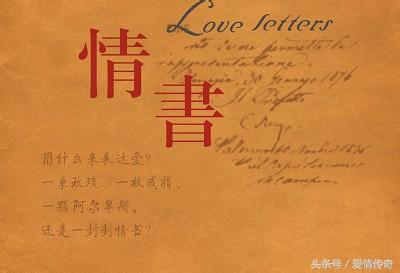 Love letters
情書
rappresentazione.
Venezia, 30 Gennajo 1876
Il Prefetto
用什么来表达爱?
一束玫瑰、一枚戒指、
一颗阿尔卑斯,
还是一封封情书?
头条号 / 爱情传奇